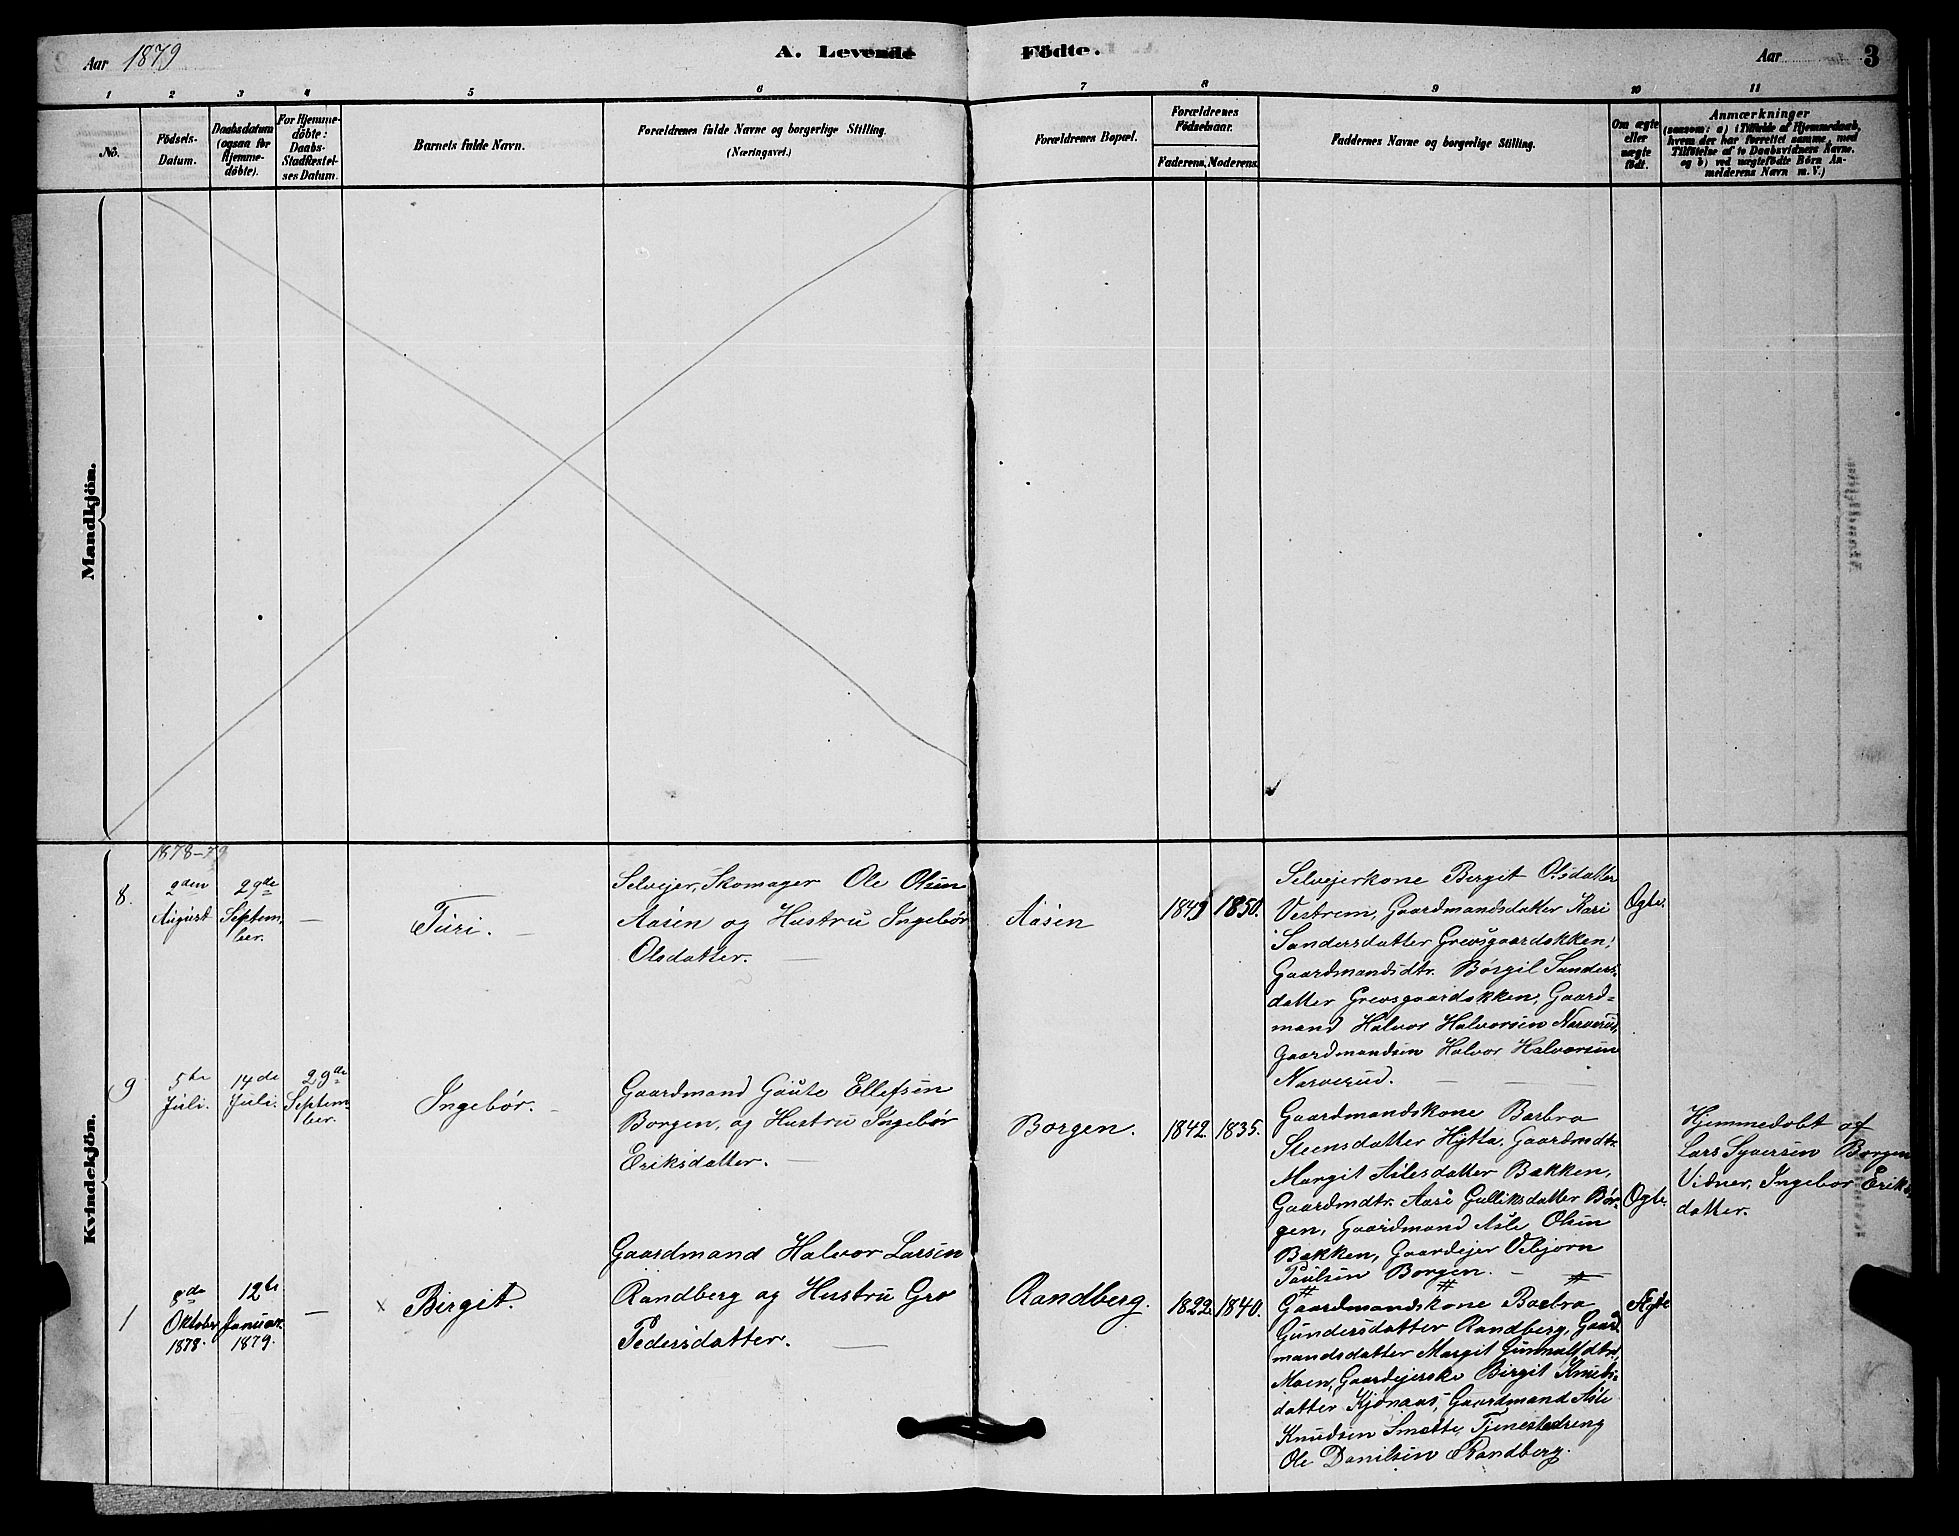 Aar 1879
A. Levende Födte.
Aar
3
1 2 3 4 5 6 7 8 9 10 11
No.
Födsels-
Datum.
Daabsdatum
(ogsaa for
Hjemme-
döbte).
For Hjemme-
döbte:
Daabs-
Stadfæstel-
ses Datum.
Barnets fulde Navn.
Forældrenes fulde Navne og borgerlige Stilling.
(Næringsvei.)
Forældrenes Bopæl.
Forældrenes
Födselsaar.
Faderens. Moderens.
Faddernes Navne og borgerlige Stilling.
Om ægte
eller
uægte
födt.
Anmærkninger
(saasom: a) i Tilfælde af Hjemmedaab,
hvem der har forrettet samme, med
Tilföielse af to Daabsvidners Navne,
og b) ved uægtefödte Börn An-
melderens Navn m. V.)
Mandkjön.
Kvindekjön.
1878-79
8.
2den
August
29de
Septem-
ber.
—
Turi. —
Selvejer, Skomager Ole Olsen
Aasen og Hustru Ingebør
Olsdatter. —
Aasen
1849 1850.
Selvejerkone Birgit Olsdatter
Vestrem, Gaardmandsdatter Kari
Sandersdatter Grevsgaardokken,
Gaardmandsdtr. Børgil Sanders-
datter Grevsgaardokken, Gaard=
mand Halvor Halvorsen Narverud,
Gaardmandsen Halvor Halvorsen
Narverud. — —
Ægte.
9
5te
Juli.
14de
Juli.
29de
Septem-
ber.
Ingebør. —
Gaardmand Gaute Ellefsen
Borgen, og Hustru Ingebør
Eriksdatter. —
Borgen.
1842. 1835.
Gaardmandskone Barbra
Steensdatter Hytta, Gaardmdtr.
Margit Aslesdatter Bakken,
Gaardmdtr. Aase Gulliksdatter Bor-
gen, Gaardmand Asle Olsen
Bakken, Gaardejer Vebjørn
Paulsen Borgen. —
Ægte.
Hjemmedøbt af
Lars Syversen Borgen
Vidner, Ingebor Eriks-
datter.
1
8de
Oktober
1878.
12te
Januar
1879.
—
× Birgit.
Gaardmand Halvor Larsen
Randberg og Hustru Gro
Pedersdatter. —
Randberg.
1822. 1840.
Gaardmandskone Barbra
Gundersdatter Randberg, Gaard
mandsdatter Margit Gunnulfdtr.
Moen, Gaardejerske Birgit Knuds-
datter Kjønaas, Gaardmand Asle
Knudsen Smette, Tjenestedreng
Ole Danilsen Randberg.
Ægte